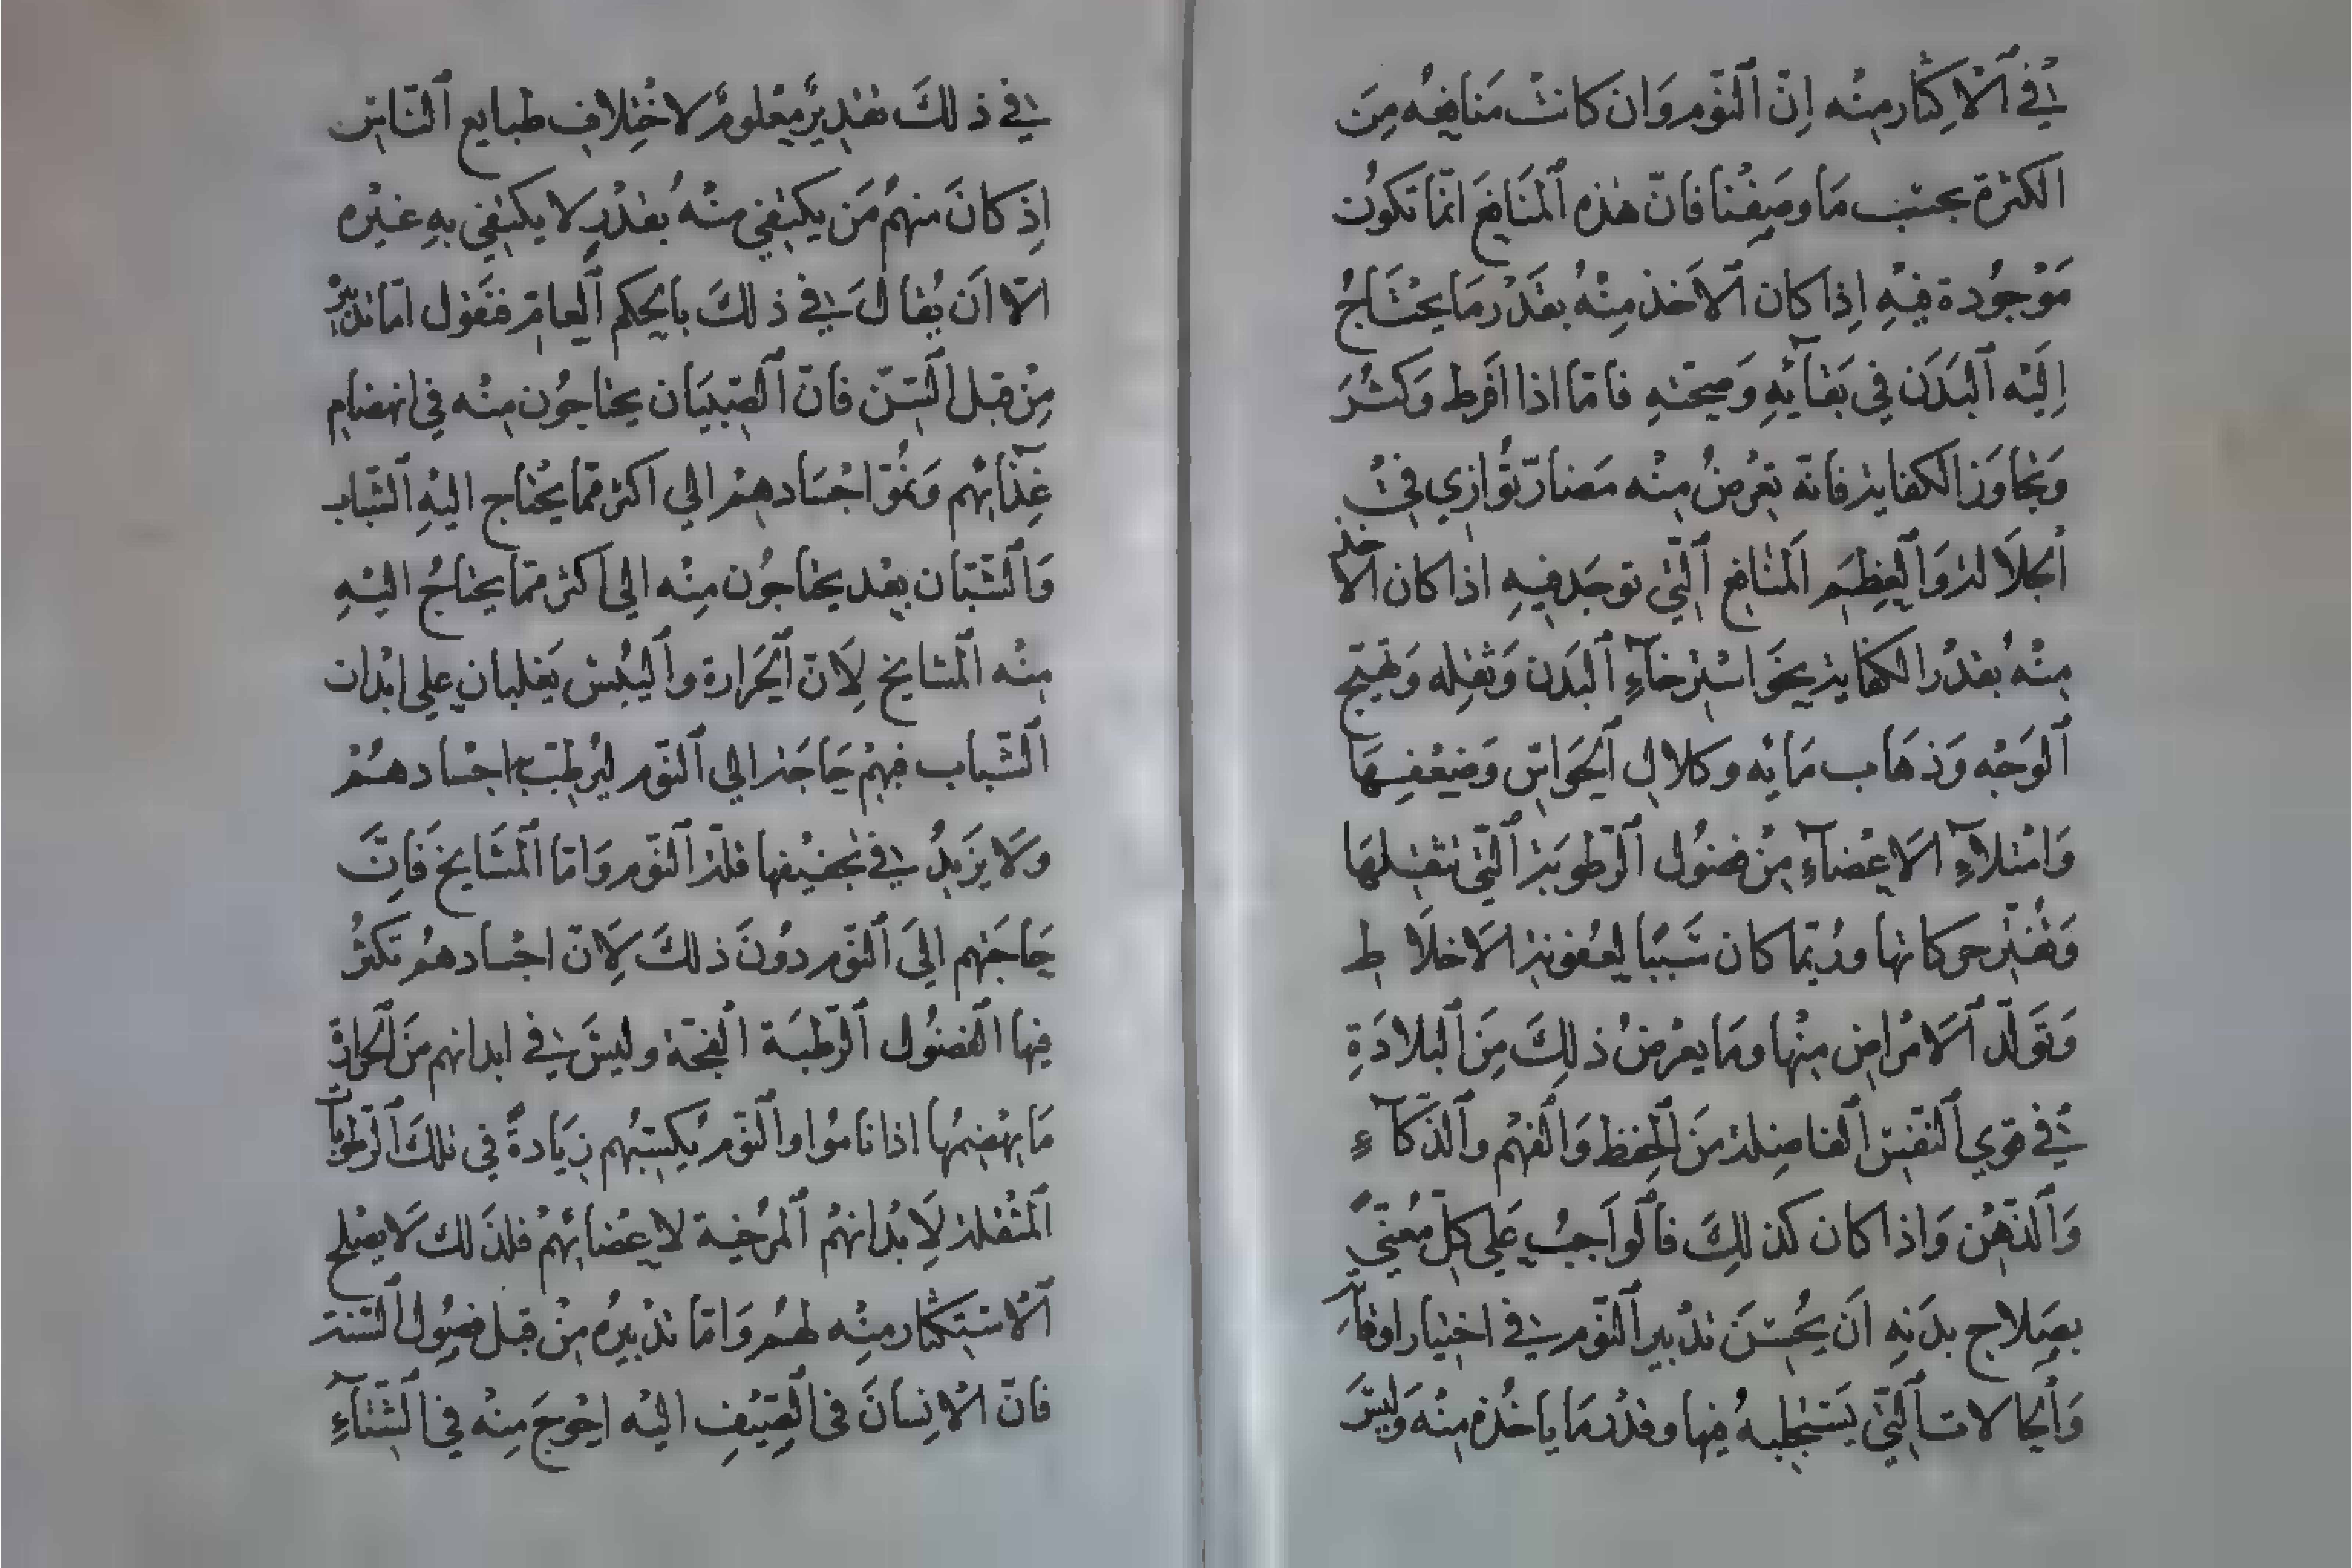 في الاكثار منه اِنّ النّوم وَان كانت مَنافِعُه مِنَ
الكثرة بحسَب مَا وصَفْنا فانّ هٰذه المنَافعَ انّما تكوُن
مَوْجُودة فيهِ اِذا كان الاَخذ مِنْهُ بقَدْر مَا يحْتَاجُ
اِليْه البَدَن فِي بَقآئِهِ وَصِحّتهِ فامّا اذا افرط وَكثُرَ
وَتجاوَز الكفاية فانّه تعْرضُ مِنْه مَضارّ تُوازي فيْ
الجلَالة وَالعِظَم المنَافع الّتي توجَد فيهِ اذا كان الاخذ
مِنْهُ بقدْر الكفاية نحَو اسْترْخآءِ البَدن وَثقله وَتهَيّج
الوَجْه وَذهَاب مَائِه وكلالِ الحَواسّ وَضعْفِهَا
وَامْتلآءِ الاَعْضآءِ مِنْ فضُول الرّطوبة الّتي تثقلهَا
وَتُفَتّر حركاتها ورُبّما كان سَببًا لعُفونة الاَخلَاط
وَتَوَلّد الاَمْراض مِنْها ومَا يعْرضُ ذلِكَ مِنَ البلَادَةِ
في قوي النّفس الفاضِلة مِنَ الحِفظ وَالفَهْم وَالذّكآءِ
وَالذّهْن وَاذا كان كذلِكَ فالوَاجبُ عَلي كلّ مُعْنيً
بصَلاح بدَنهِ اَن يُحْسِنَ تدْبير النّوم في اختيار اوقاته
وَالحالات الّتي يَسْتجْلبهُ فيها وقدْر مَا ياخُذه مِنْه وَليْسَ
في ذلكَ تقديرٌ معْلومٌ لاخْتِلاف طبايع النّاس
اِذ كانَ منهمُ مَن يكتفي منْهُ بقدْرٍ لا يكتفي بهِ غيْره
الّا اَن يُقالَ في ذلكَ بالحكم العامّ فنَقول امّا تدبيرُ
مِنْ قبل السّنّ فانّ الصّبيَان يحتاجوُن مِنْه في انهضام
غِذآئهم وَنُموّ اجْسَادهمْ الي اكثر ممّا يحْتاج اليْهِ الشّباب
وَالشّبّان بعْد يحتاجُون مِنْه الي اكثر ممّا يحتاجُ اليْهِ
مِنْه المشايخ لِاَنّ الحَرارة واليُبْس يَغلبان علي ابْدان
الشّباب فبهِمْ حَاجَة الي النّوم ليُرطّب اجْسادهُمْ
وَلَا يَزيدُ في تجْفيْفها قلّة النّوم وَامّا المشَايخ فَانَّ
حَاجَتهم اِليَ النّوم دُونَ ذلكَ لِاَنّ اجْسادهمُ تكثُر
فيها الفضُول الرّطبَة الفِجّة وليسَ في ابدانهم مِنَ الحرارة
مَا يهْضِمُها اذا نامُوا والنّوم يُكسِبُهم زيَادةً في تلكَ الرّطوبات
المثْقلة لِاَبْدانهمْ المرُخية لاعْضائهمْ فلذَلك لَا يصْلح
الاسْتكثار مِنْه لهُم وَامّا تدْبيرُه مِنْ قبل فصُول السّنة
فانّ الاِنسانَ في الصّيْفِ اليْه احْوجَ مِنْه في الشّتآءِ